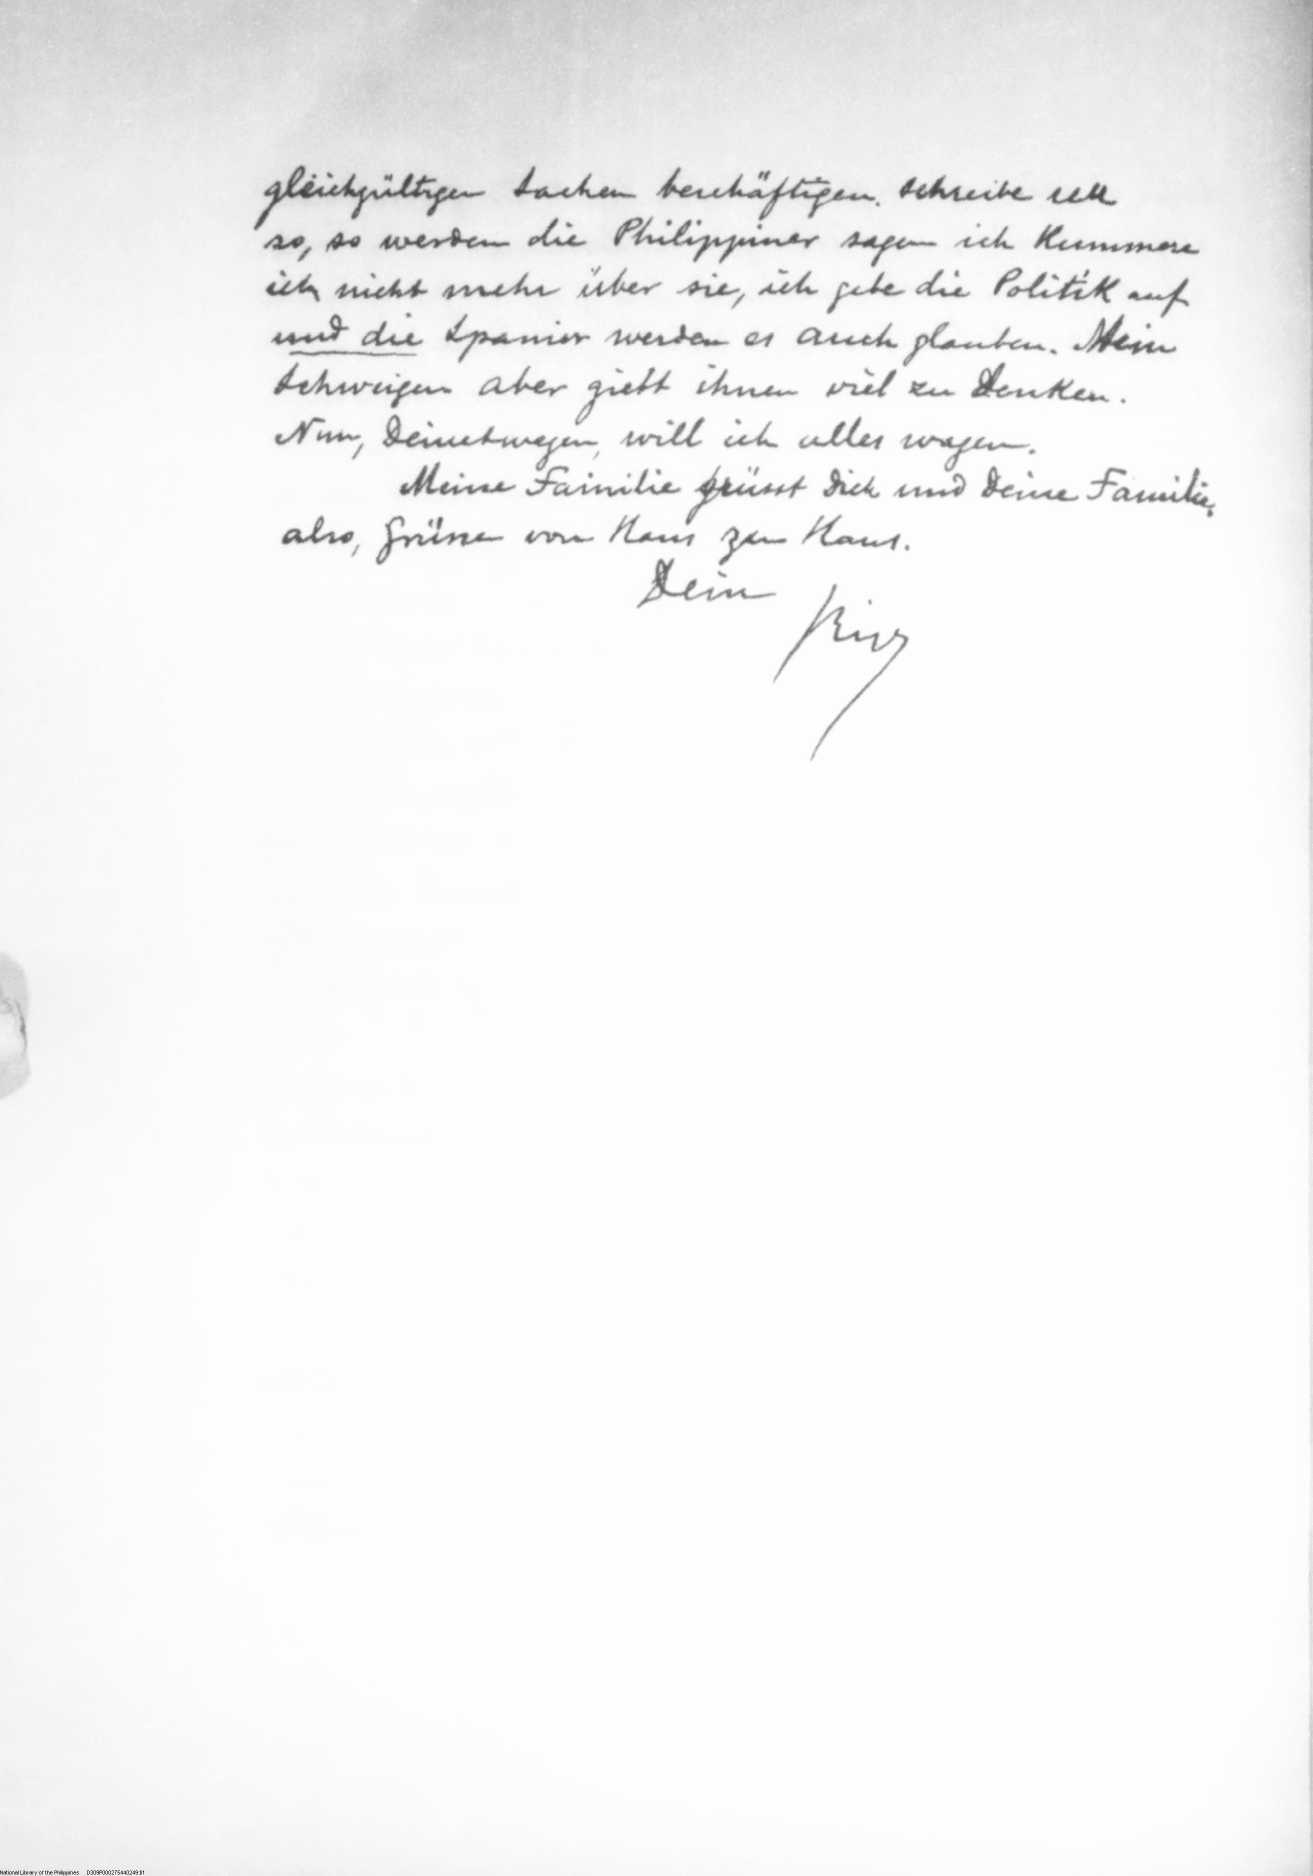 gleichgültigen Sachen beschäftigen. Schreibe ich
so, so werden die Philippiner sagen ich kummere
ich nicht mehr über sie, ich gebe die Politik auf
und die Spanier werden es auch glauben. Mein
Schweigen aber giebt ihnen viel zu Denken.
Nun, Deinetwegen, will ich alles wagen.
Meine Familie grüsst Dich und Deine Familie,
also, Grüsse von Haus zu Haus.
Dein
Rizal
National Library of the Philippines